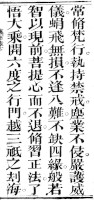 常脩梵行執持禁戒塵業不侵嚴護威
儀蜎飛無損不逢八難不缺四緣般若
智以現前菩提心而不退脩習正法了
悟大乘開六度之行門越三祇之劫海